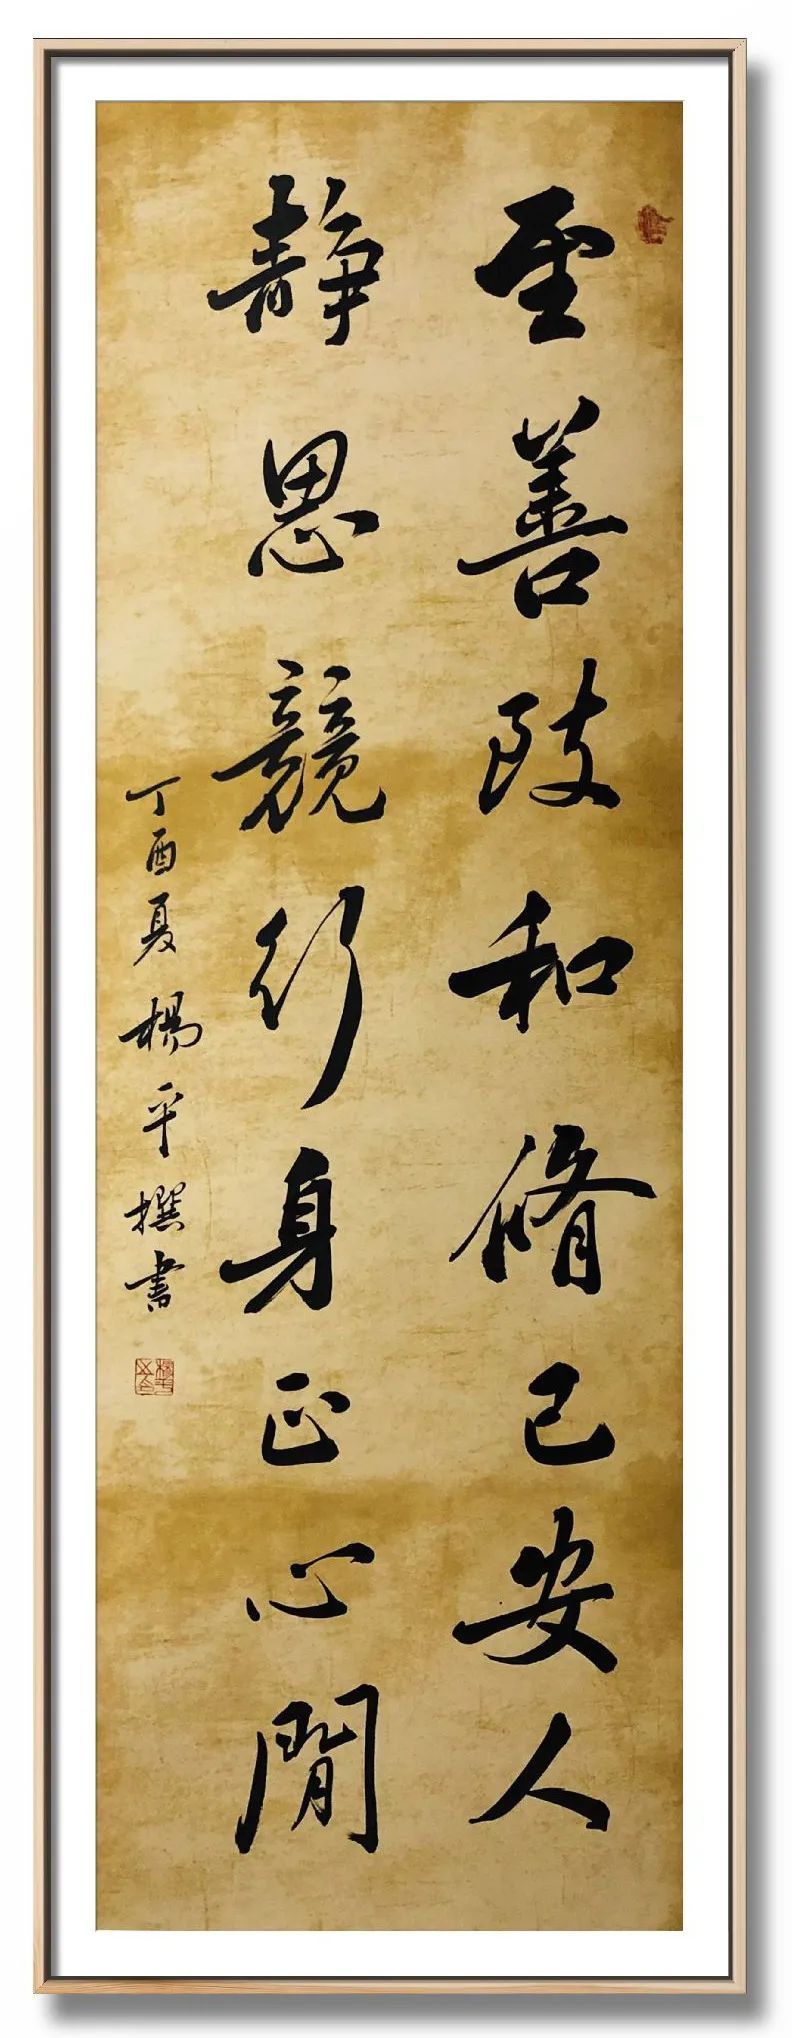 至善致和脩己安人
静思競行身正心閒
丁酉夏楊平撰書